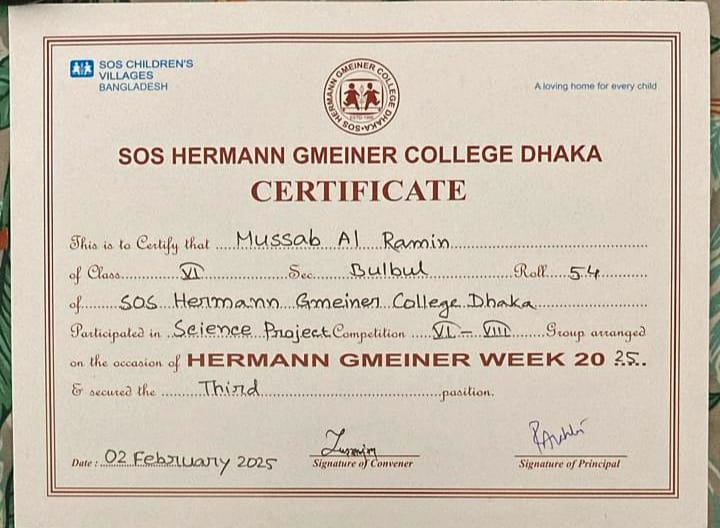 SOS CHILDREN'S
VILLAGES
BANGLADESH
HERMANN GMEINER COLLEGE DHAKA
SOS
A loving home for every child
SOS HERMANN GMEINER COLLEGE DHAKA
CERTIFICATE
This is to Certify that Mussab Al Ramin
of Class VI Sec Bulbul Roll 54
of SOS Hermann Gmeiner College Dhaka
Participated in Science Project Competition VI - VIII Group arranged
on the occasion of HERMANN GMEINER WEEK 2025.
& secured the Third position.
Date : 02 February 2025
Signature of Convener
Signature of Principal